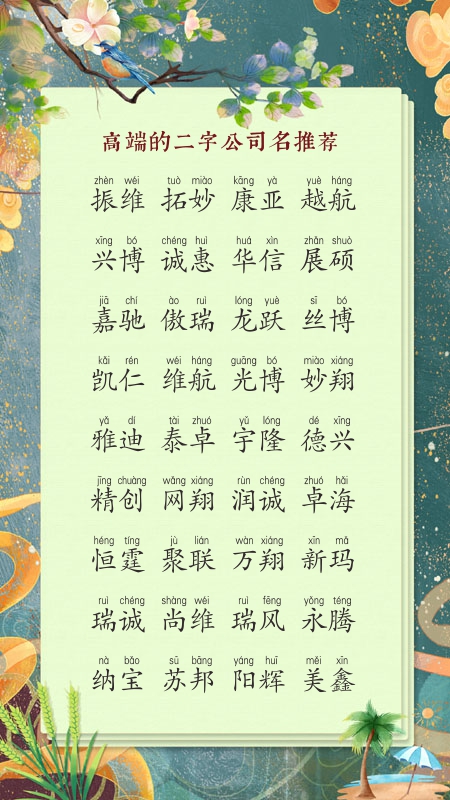 高端的二字公司名推荐
zhèn wéi tuò miào kāng yà yuè háng
振维 拓妙 康亚 越航
xīng bó chéng huì huá xìn zhǎn shuò
兴博 诚惠 华信 展硕
jiā chí ào ruì lóng yuè sī bó
嘉驰 傲瑞 龙跃 丝博
kǎi rén wéi háng guāng bó miào xiáng
凯仁 维航 光博 妙翔
yǎ dí tài zhuó yǔ lóng dé xīng
雅迪 泰卓 宇隆 德兴
jīng chuàng wǎng xiáng rùn chéng zhuó hǎi
精创 网翔 润诚 卓海
héng tíng jù lián wàn xiáng xīn mǎ
恒霆 聚联 万翔 新玛
ruì chéng shàng wéi ruì fēng yǒng téng
瑞诚 尚维 瑞风 永腾
nà bǎo sū bāng yáng huī měi xīn
纳宝 苏邦 阳辉 美鑫